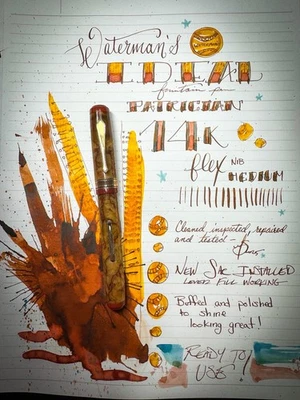 Waterman's
IDEAL
fountain pen
PATRICIAN
14K
flex NIB
MEDIUM
Cleaned, inspected, repaired
and tested -
NEW SAC INSTALLED
LEVER FILL WORKING
Buffed and polished
to shine
looking great!
READY TO
USE